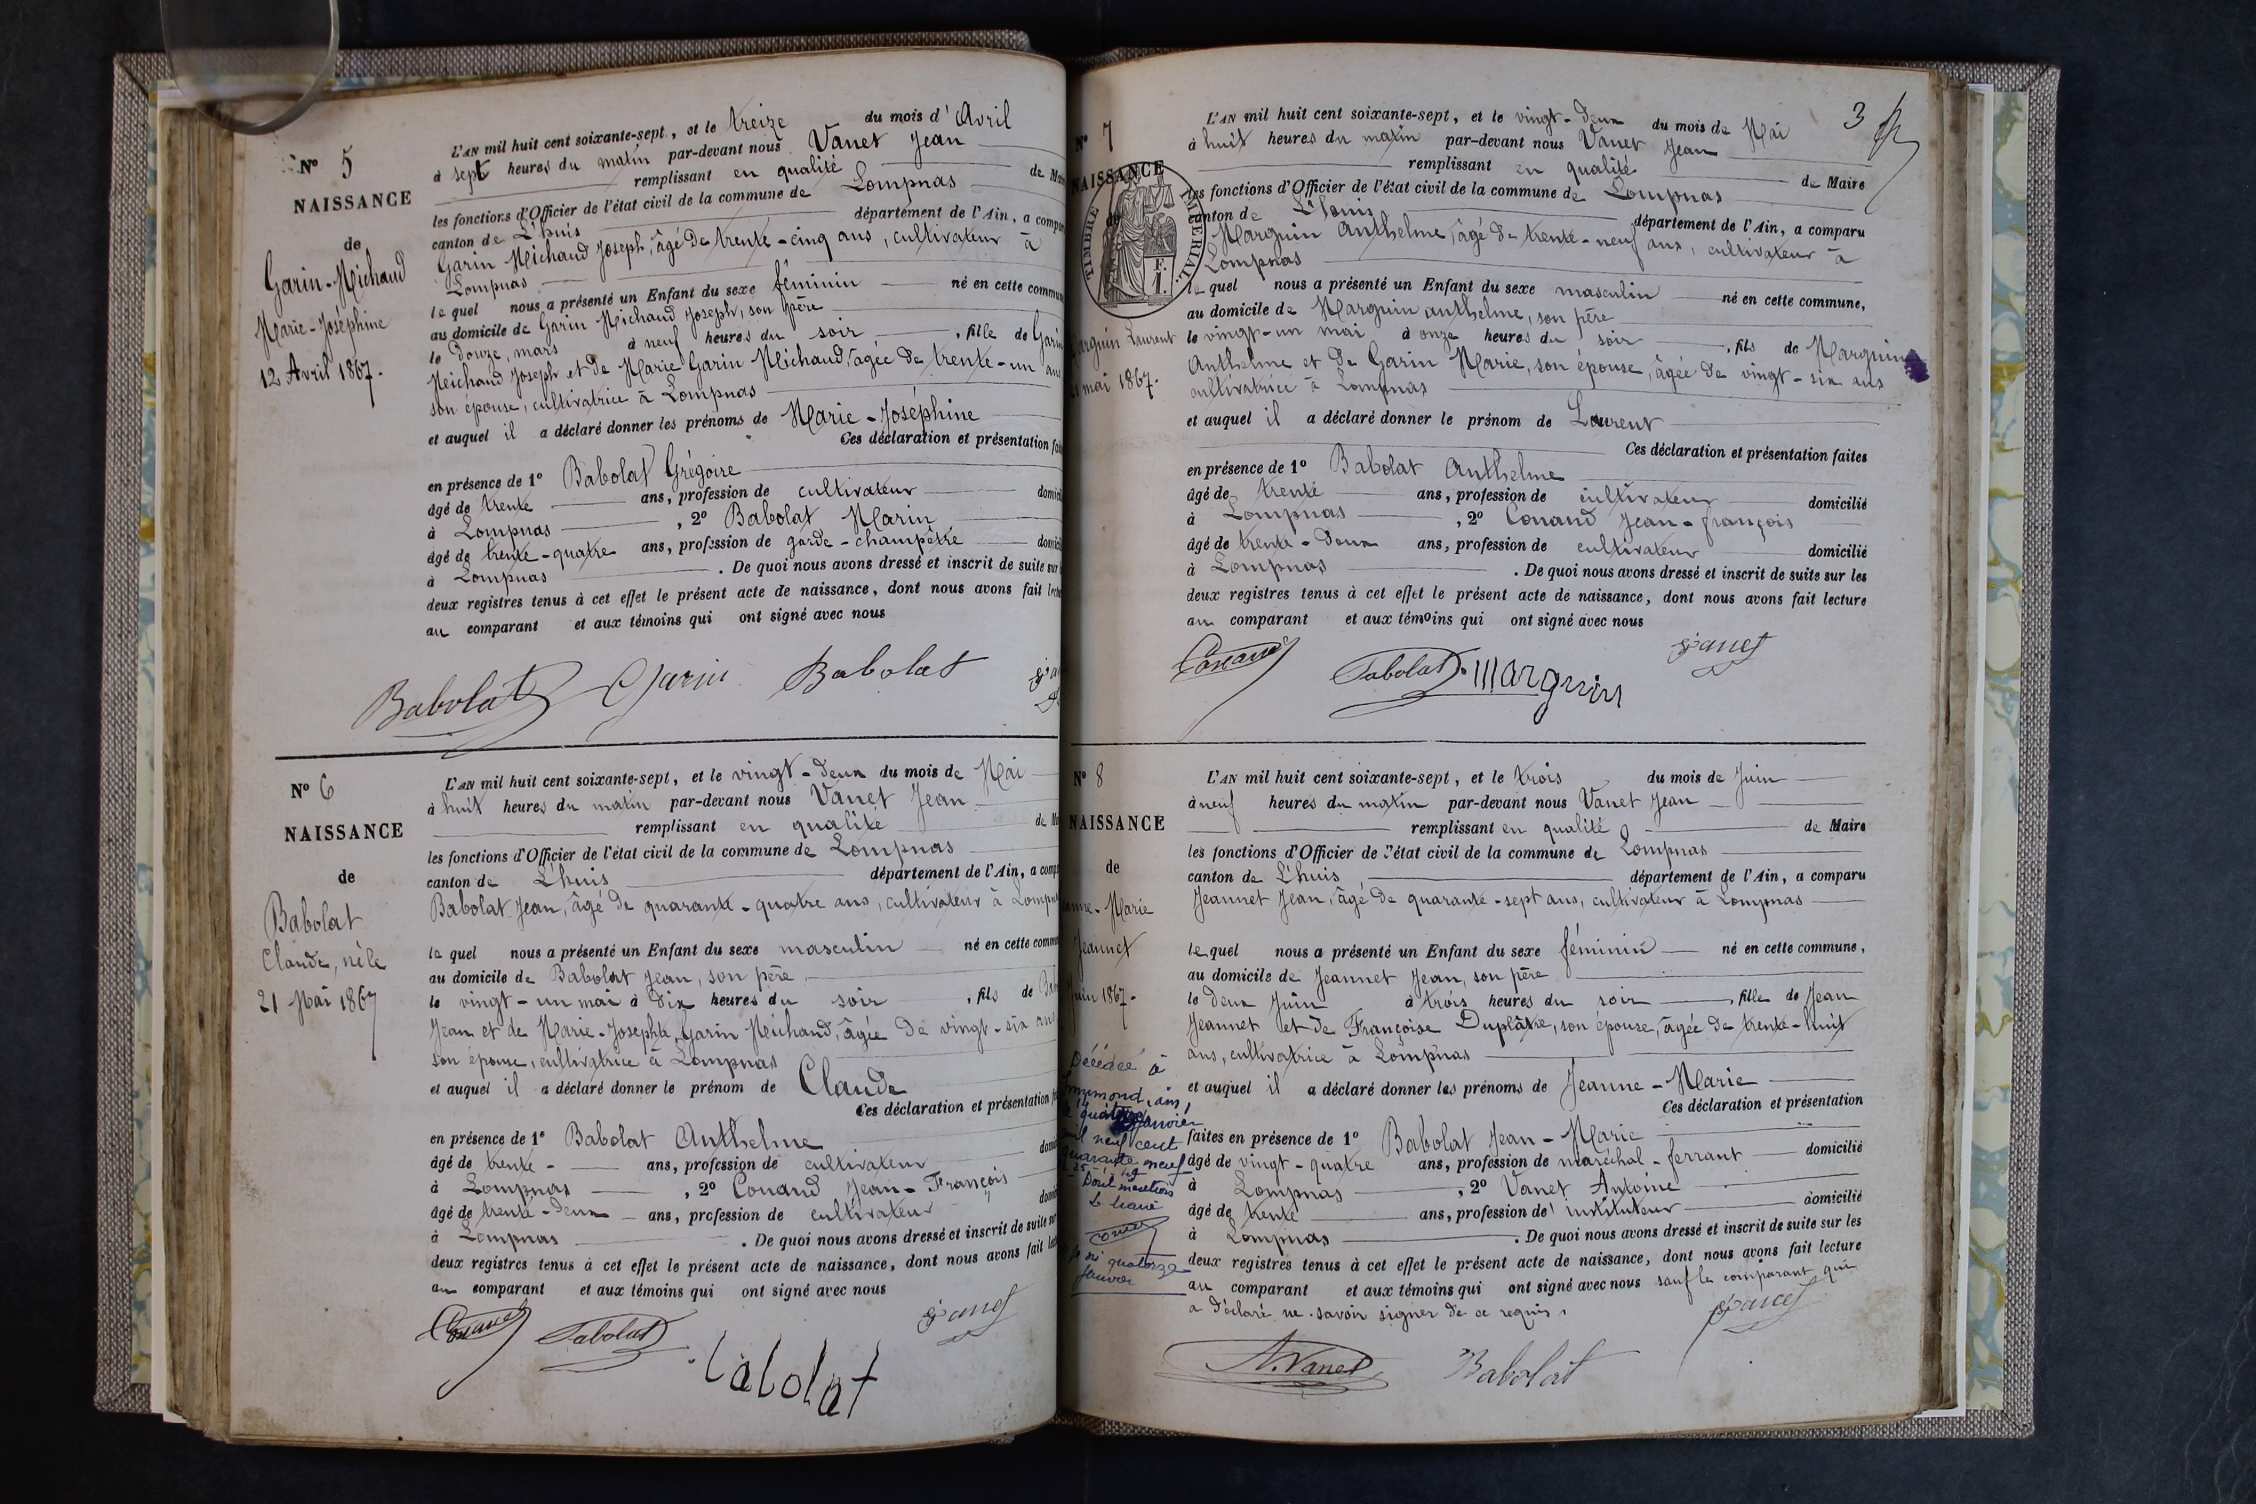 N° 5
NAISSANCE
de
Garin-Michaud
Marie-Joséphine
12 Avril 1867.
L'AN mil huit cent soixante-sept, et le treize du mois d'Avril
à sept heures du matin par-devant nous Vanet Jean
remplissant en qualité de
les fonctions d'Officier de l'état civil de la commune de Lompnas
canton de L'huis département de l'Ain, a
Garin Michaud Joseph, âgé de trente-cinq ans, cultivateur à
Lompnas
le quel nous a présenté un Enfant du sexe féminin né en cette
au domicile de Garin Michaud Joseph, son père
le douze, mars à neuf heures du soir, fille de
Michaud Joseph et de Marie Garin Michaud, âgée de trente-un ans
son épouse, cultivatrice à Lompnas
et auquel il a déclaré donner les prénoms de Marie-Joséphine
Ces déclaration et présentation
en présence de 1° Babolat Grégoire
âgé de trente ans, profession de cultivateur
à Lompnas, 2° Babolat Marin
âgé de trente-quatre ans, profession de garde-champêtre
à Lompnas. De quoi nous avons dressé et inscrit de suite sur
deux registres tenus à cet effet le présent acte de naissance, dont nous avons fait
au comparant et aux témoins qui ont signé avec nous
Babolat Garin Babolat
N° 6
NAISSANCE
de
Babolat
Claude, né le
21 Mai 1867
L'AN mil huit cent soixante-sept, et le vingt-deux du mois de Mai
à huit heures du matin par-devant nous Vanet Jean
remplissant en qualité de
les fonctions d'Officier de l'état civil de la commune de Lompnas
canton de L'huis département de l'Ain, a
Babolat Jean, âgé de quarante-quatre ans, cultivateur à
le quel nous a présenté un Enfant du sexe masculin né en cette
au domicile de Babolat Jean, son père
le vingt-un mai à dix heures du soir, fils de
Jean et de Marie-Josephte Garin Michaud, âgée de vingt-six ans
son épouse, cultivatrice à Lompnas
et auquel il a déclaré donner le prénom de Claude
Ces déclaration et présentation
en présence de 1° Babolat Anthelme
âgé de trente- ans, profession de cultivateur
à Lompnas, 2° Conand Jean-François
âgé de trente-deux ans, profession de cultivateur
à Lompnas. De quoi nous avons dressé et inscrit de suite sur
deux registres tenus à cet effet le présent acte de naissance, dont nous avons fait
au comparant et aux témoins qui ont signé avec nous
Conand Babolat Vanet
Babolat
3
N° 7
NAISSANCE
de
TIMBRE IMPÉRIAL
Marguin Laurent
mai 1867.
L'AN mil huit cent soixante-sept, et le vingt-deux du mois de Mai
à huit heures du matin par-devant nous Vanet Jean
remplissant en qualité de Maire
les fonctions d'Officier de l'état civil de la commune de Lompnas
canton de L'huis département de l'Ain, a comparu
Marguin Anthelme, âgé de trente-neuf ans, cultivateur à
Lompnas
le quel nous a présenté un Enfant du sexe masculin né en cette commune,
au domicile de Marguin anthelme, son père
le vingt-un mai à onze heures du soir, fils de Marguin
Anthelme et de Garin Marie, son épouse, âgée de vingt-six ans
cultivatrice à Lompnas
et auquel il a déclaré donner le prénom de Laurent
Ces déclaration et présentation faites
en présence de 1° Babolat Anthelme
âgé de trente ans, profession de cultivateur domicilié
à Lompnas, 2° Conand Jean-françois
âgé de trente-deux ans, profession de cultivateur domicilié
à Lompnas. De quoi nous avons dressé et inscrit de suite sur les
deux registres tenus à cet effet le présent acte de naissance, dont nous avons fait lecture
au comparant et aux témoins qui ont signé avec nous
Conand Babolat Marguin Vanet
N° 8
NAISSANCE
de
Marie
Jeannet
Juin 1867.
Décédée à
quatorze janvier
mil neuf cent
quarante neuf
Dont mention
Le Maire
quatorze
janvier
L'AN mil huit cent soixante-sept, et le trois du mois de Juin
à neuf heures du matin par-devant nous Vanet Jean
remplissant en qualité de Maire
les fonctions d'Officier de l'état civil de la commune de Lompnas
canton de L'huis département de l'Ain, a comparu
Jeannet Jean, âgé de quarante-sept ans, cultivateur à Lompnas
le quel nous a présenté un Enfant du sexe féminin né en cette commune,
au domicile de Jeannet Jean, son père
le deux Juin à trois heures du soir, fille de Jean
Jeannet et de Françoise Duplâtre, son épouse, âgée de trente-huit
ans, cultivatrice à Lompnas
et auquel il a déclaré donner les prénoms de Jeanne-Marie
Ces déclaration et présentation
faites en présence de 1° Babolat Jean-Marie
âgé de vingt-quatre ans, profession de maréchal-ferrant domicilié
à Lompnas, 2° Vanet Antoine
âgé de trente ans, profession d'instituteur domicilié
à Lompnas. De quoi nous avons dressé et inscrit de suite sur les
deux registres tenus à cet effet le présent acte de naissance, dont nous avons fait lecture
au comparant et aux témoins qui ont signé avec nous sauf le comparant qui
a déclaré ne savoir signer de ce requis.
Vanet
A. Vanet Babolat